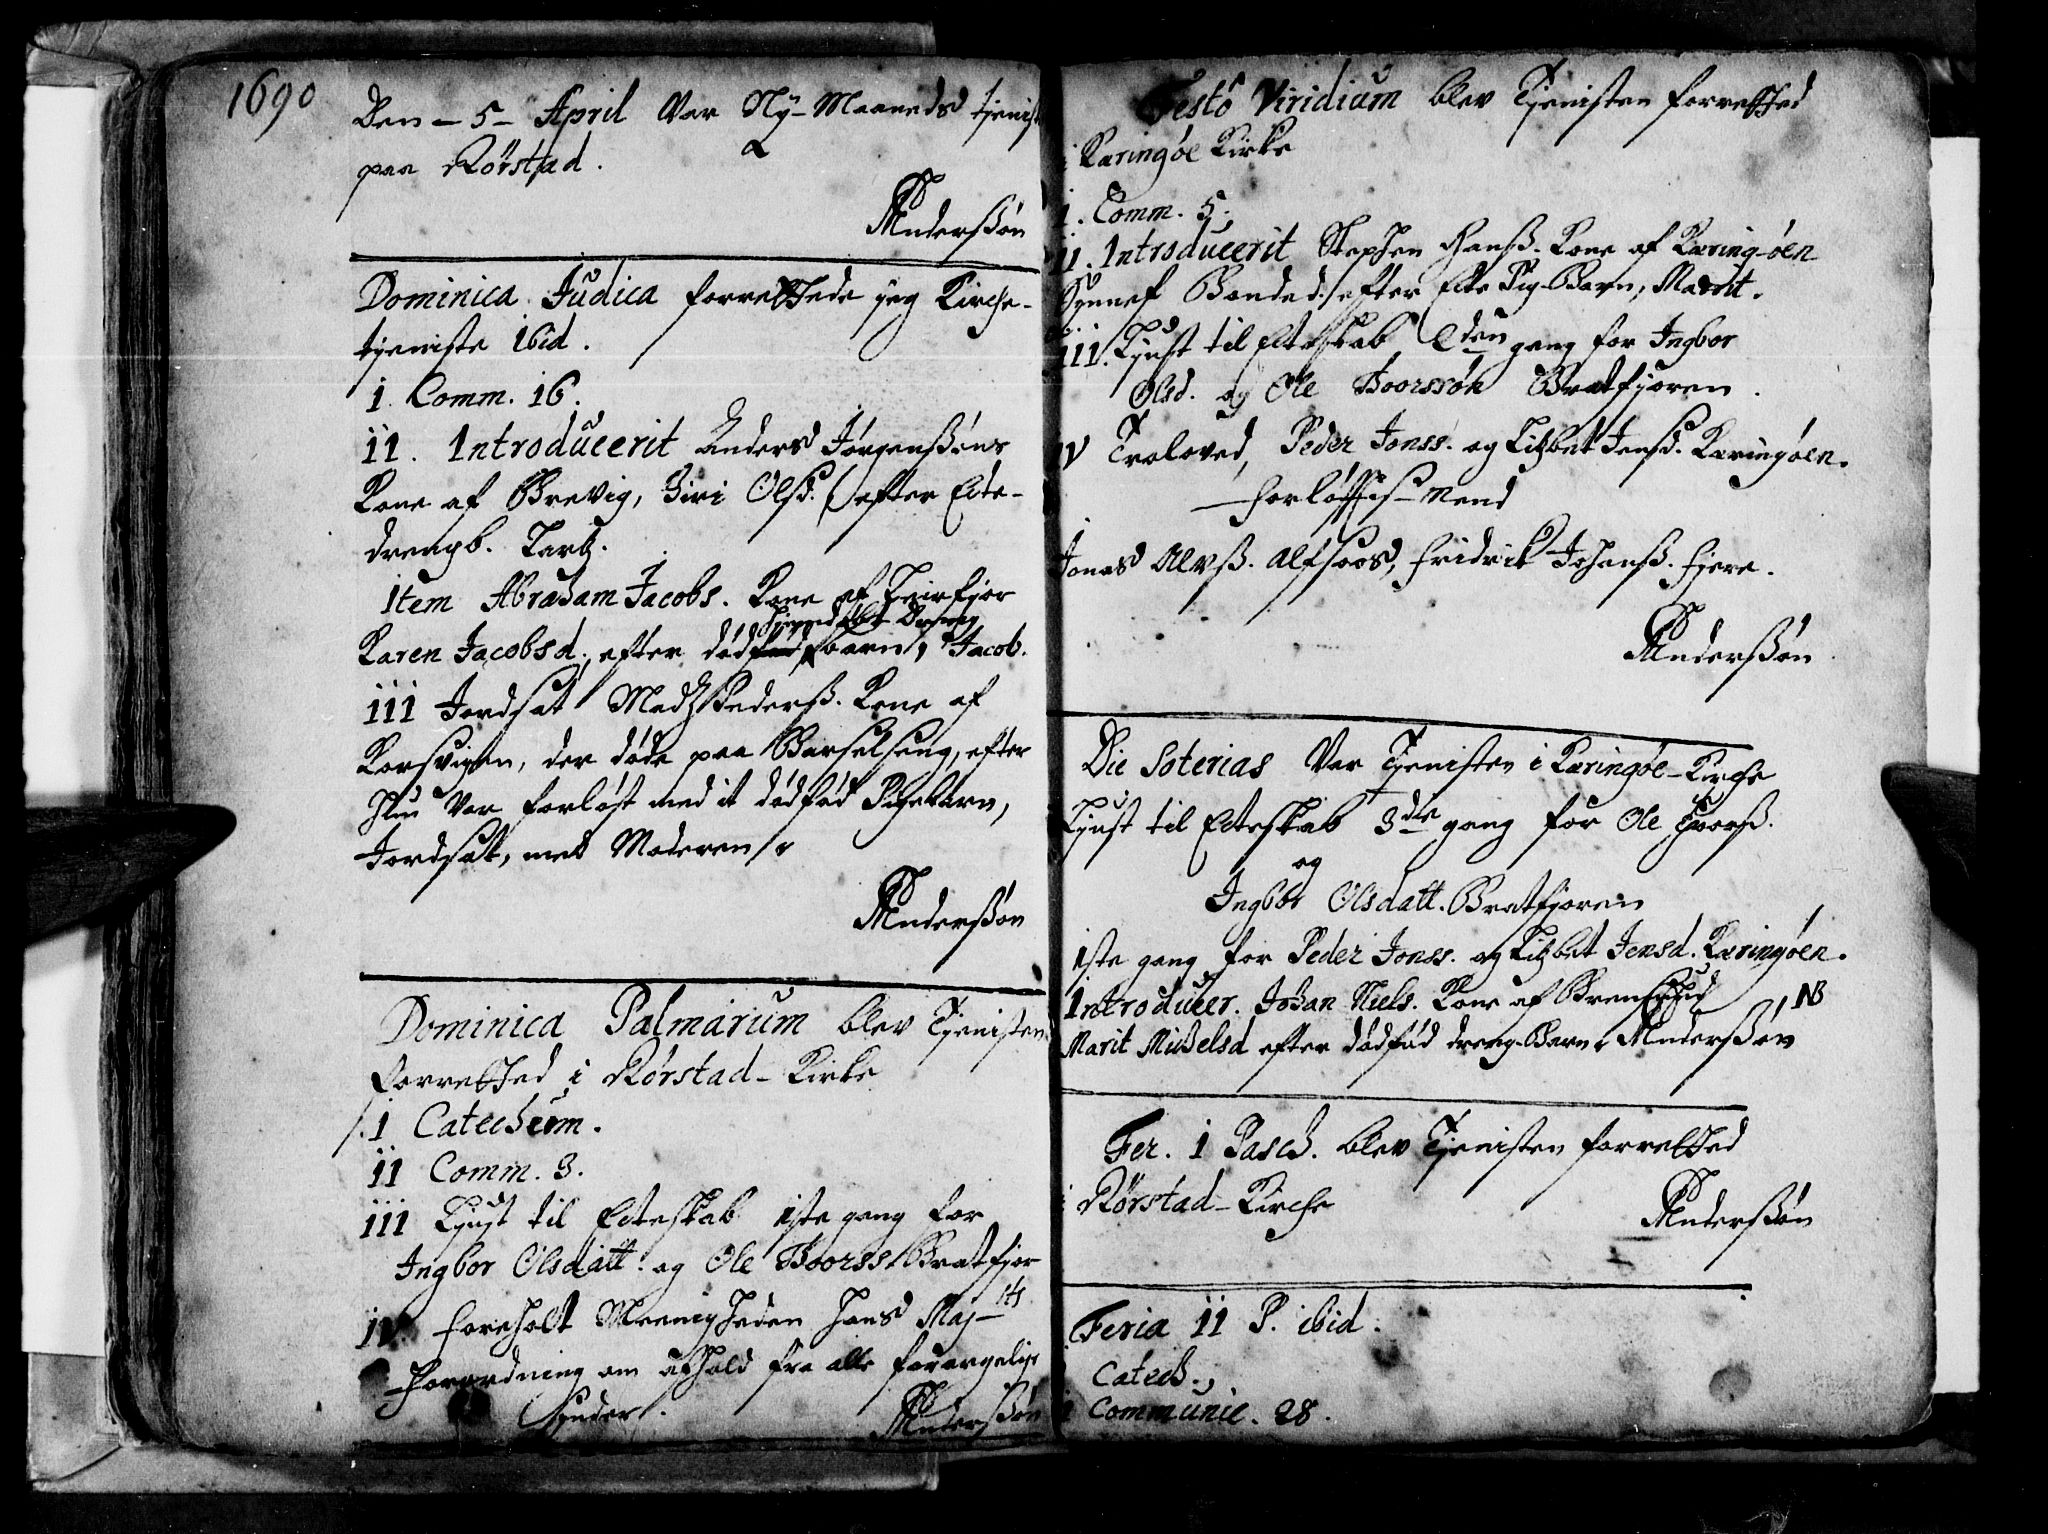 1690
Den - 5 - April Var Ny-Maaneds tienist
paa Rørstad.
Anderßøn
Dominica Judica forrettede jeg Kirche-
tieniste ibid.
i Comm. 16.
ii. Introducerit Anders Jørgenßøns
Kone af Brevig, Siri Olsd. efter Ecte-
drengb. Lars.
item Abraham Jacobs. Kone af Leirfjor
Karen Jacobsd., efter barn, Jacob.
iii Jordsat Madz Pederß. Kone af
Korsvigen, der døde paa Barselseng, efter
Hun Var forløst med it dødfød Pigebarn,
Jordsat, med Moderen
Anderßøn
Dominica Palmarum blev Tienisten
forretted i Rørstad-Kirke
i Catechism.
ii Comm. 3.
iii Liust til Ecteskab iste gang for
Ingbor Olsdatt. og Ole Thoorss. Bratfjor
iv foreholt Meenigheden Hans Maj-ts
forordning om afhold fra alle forargelige
Synder.
Anderßøn
Festo Viridium blev Tienisten forretted
i Karingøe Kirke
i. Comm. 5.
ii. Introducerit Stephen Hanß. Kone af Karing-øen
Synnef Bondesd. efter Ecte Pig-Barn, Marit.
iii. Liust til Ecteskab 2den gang for Ingbor
Olsd. og Ole Thoorssøn Bratfjoren.
iv Troloved, Peder Jonss. og Litzbet Jensd. Karingøen.
forløfftis-Mend
Jonas Alvß. Alfsoos, Fridrik Johanß. Fiere.
Anderßøn
Die Soterias Var Tienisten i Karingøe-Kirche
Liust til Ecteskab 3die gang for Ole Thorß.
og
Ingbor Olsdatt. Bratfjoren
iste gang for Peder Jonss. og Litzbet Jensd. Karingøen.
Introducer. Johan Niels. Kone af NB
Marit Mickelsd efter dødfød dreng-Barn. Anderßøn
Fer. i Pasch. blev Tienisten forretted
i Rørstad-Kirche
Anderßøn
Feria ii P. ibid.
i Catech.
ii Communic. 28.